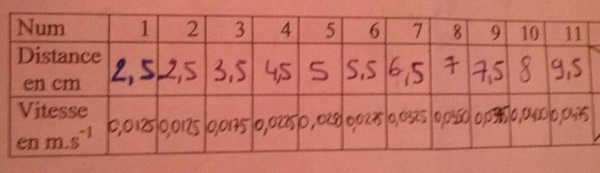 Num 1 2 3 4 5 6 7 8 9 10 11
Distance
en cm 2,5 2,5 3,5 4,5 5 5,5 6,5 7 7,5 8 9,5
Vitesse
en m.s⁻¹ 0,0125 0,0125 0,0175 0,0225 0,0250 0,0275 0,0325 0,0350 0,0375 0,0400 0,0475